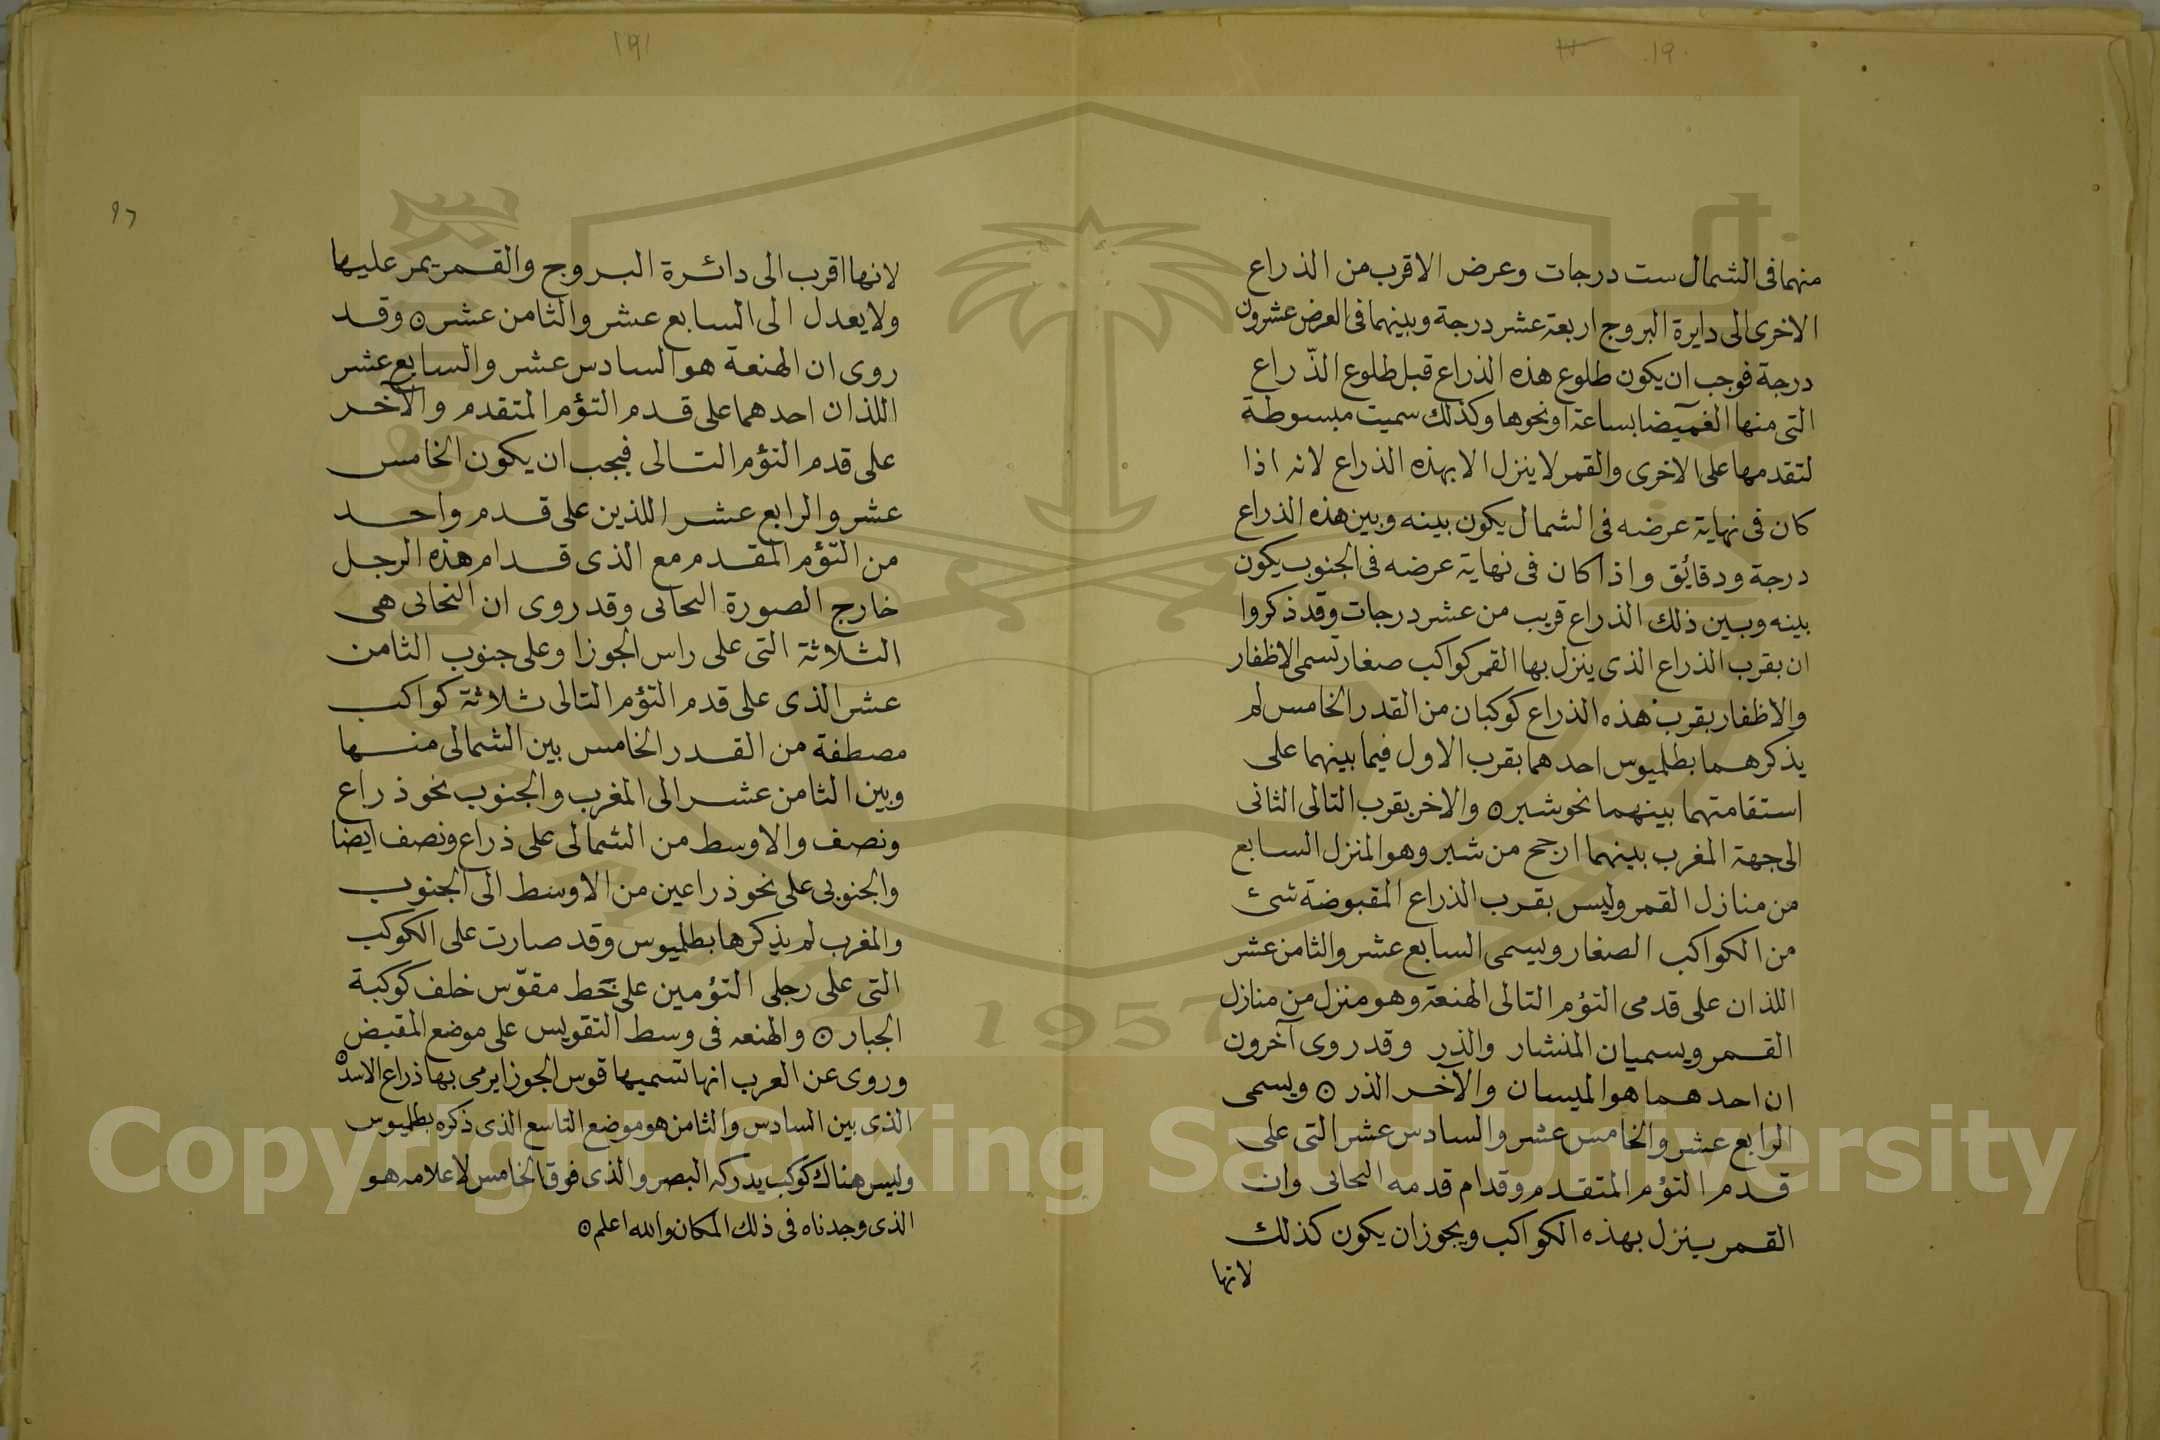 ١٩٠
منهما فى الشمال ست درجات وعرض الاقرب من الذراع
الاخرى الى دايرة البروج اربعة عشر درجة وبينهما فى العرض عشرون
درجة فوجب ان يكون طلوع هذه الذراع قبل طلوع الذّراع
التى منها الغميضا بساعة اونحوها وكذلك سميت مبسوطة
لتقدمها على الاخرى والقمر لا ينزل الا بهذه الذراع لانه اذا
كان فى نهاية عرضه فى الشمال يكون بينه وبين هذه الذراع
درجة ودقائق واذا كان فى نهاية عرضه فى الجنوب يكون
بينه وبين ذلك الذراع قريب من عشر درجات وقد ذكروا
ان بقرب الذراع الذى ينزل بها القمر كواكب صغار تسمى الاظفار
والاظفار بقرب هذه الذراع كوكبان من القدر الخامس لم
يذكرهما بطلميوس احدهما بقرب الاول فيما بينهما على
استقامتهما بينهما نحو شبر ⊙ والاخر بقرب التالى الثانى
الى جهة المغرب بينهما ارجح من شبر وهو المنزل السابع
من منازل القمر وليس بقرب الذراع المقبوضة شئ
من الكواكب الصغار ويسمى السابع عشر والثامن عشر
اللذان على قدمى التؤم التالى الهنعة وهو منزل من منازل
القمر ويسميان المنشار والذر وقد روى آخرون
ان احدهما هو الميسان والآخر الذر ⊙ ويسمى
الرابع عشر والخامس عشر والسادس عشر التى على
قدم التؤم المتقدم وقدام قدمه البحاتى وان
القمر ينزل بهذه الكواكب ويجوز ان يكون كذلك
لانها
١٩١
٩٦
لانها اقرب الى دائرة البروج والقمر يمر عليها
ولا يعدل الى السابع عشر والثامن عشر ⊙ وقد
روى ان الهنعة هو السادس عشر والسابع عشر
اللذان احدهما على قدم التؤم المتقدم والآخر
على قدم التؤم التالى فيجب ان يكون الخامس
عشر والرابع عشر اللذين على قدم واحد
من التؤم المقدم مع الذى قدام هذه الرجل
خارج الصورة البحاتى وقد روى ان التحاتى هى
الثلاثة التى على راس الجوزا وعلى جنوب الثامن
عشر الذى على قدم التؤم التالى ثلاثة كواكب
مصطفة من القدر الخامس بين الشمالى منها
وبين الثامن عشر الى المغرب والجنوب نحو ذراع
ونصف والاوسط من الشمالى على ذراع ونصف ايضا
والجنوبى على نحو ذراعين من الاوسط الى الجنوب
والمغرب لم يذكرها بطلميوس وقد صارت على الكوكب
التى على رجلى التؤمين على خط مقوّس خلف كوكبة
الجبار ⊙ والهنعه فى وسط التقويس على موضع المقبض
وروى عن العرب انها تسميها قوس الجوزا يرمى بها ذراع الاسد ⊙
الذى بين السادس والثامن هو موضع التاسع الذى ذكره بطلميوس
وليس هناك كوكب يدركه البصر والذى فوقا الخامس لا علامه هو
الذى وجدناه فى ذلك المكان والله اعلم ⊙
1957
Copyright © King Saud University